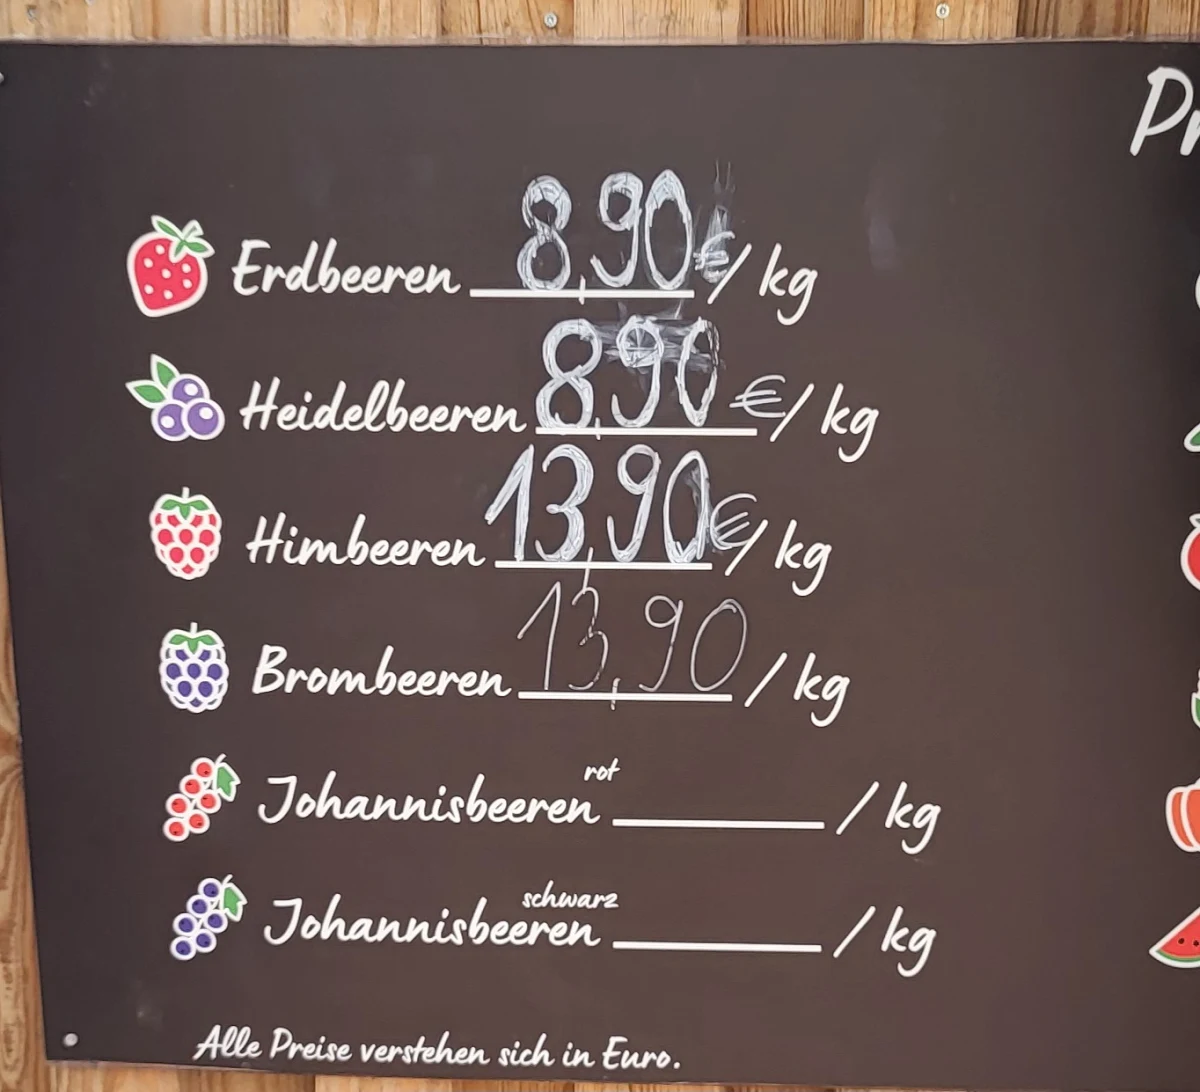 Erdbeeren 8,90 €/ kg
Heidelbeeren 8,90 €/ kg
Himbeeren 13,90 €/ kg
Brombeeren 13,90 / kg
Johannisbeeren rot / kg
Johannisbeeren schwarz / kg
Alle Preise verstehen sich in Euro.